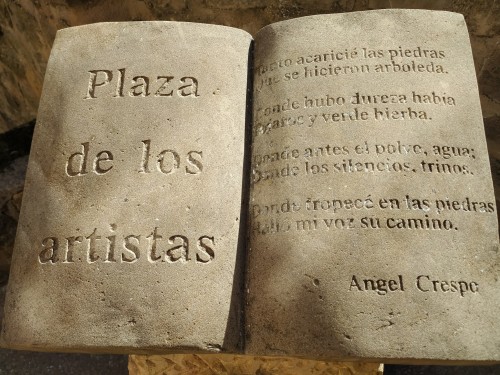 Plaza
de los
artistas
Tanto acaricié las piedras
que se hicieron arboleda.
Donde hubo dureza había
y verde hierba.
Donde antes el polvo, agua;
Donde los silencios, trinos.
Donde tropecé en las piedras
Halló mi voz su camino.
Angel Crespo